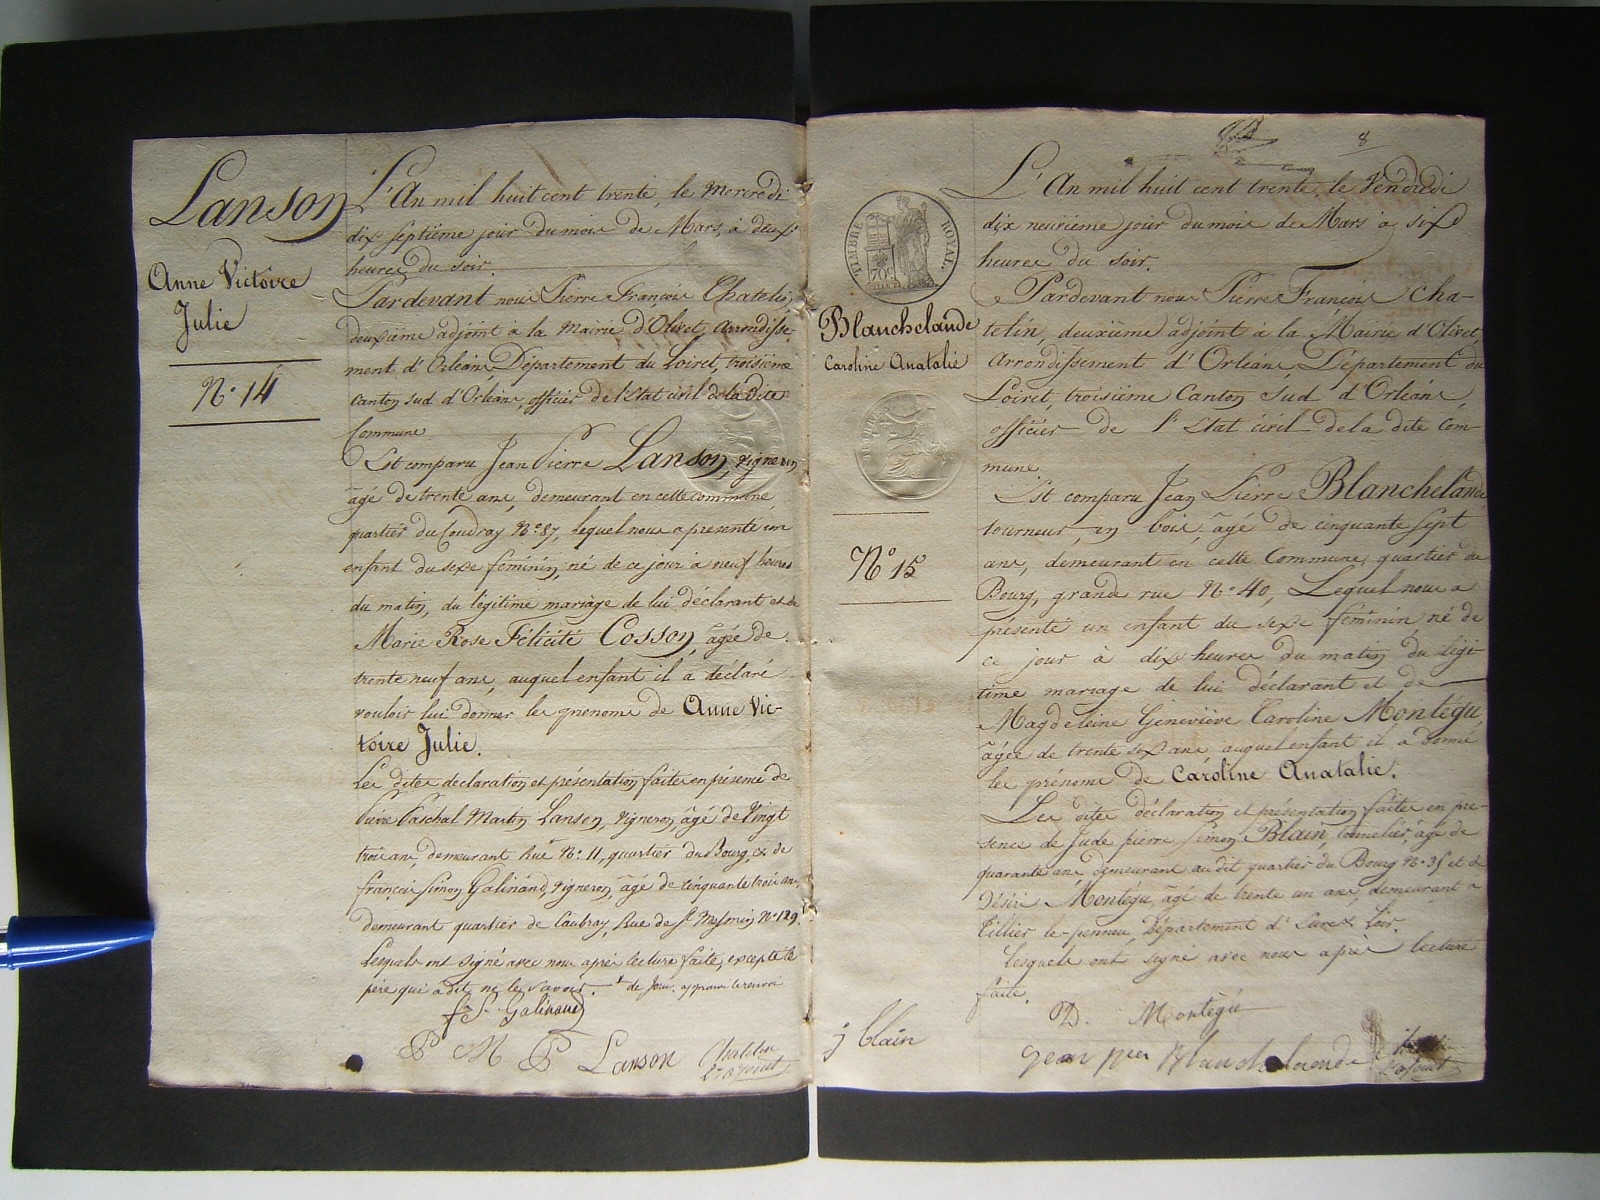 Lanson
Anne Victoire
Julie
N.º 14
L'An mil huit cent trente, le Mercredi
dix septième jour du mois de Mars, à deux
heures du soir.
Pardevant nous Pierre François Chatelin,
deuxième adjoint à la Mairie d'Olivet, arrondisse-
ment d'Orléans Département du Loiret, troisième
Canton sud d'Orléans, officier de l'Etat civil de la dite
Commune
Est comparu Jean Pierre Lanson, vigneron
âgé de trente ans, demeurant en cette commune
quartier du Coudray N.º 87, lequel nous a présenté un
enfant du sexe féminin, né de ce jour à neuf heures
du matin, du légitime mariage de lui déclarant et de
Marie Rose Félicité Cosson, âgée de
trente neuf ans, auquel enfant il a déclaré
vouloir lui donner les prenoms de Anne Vic-
toire Julie.
Les dites declaration et présentation faites en présence de
Pierre Paschal Martin Lanson, vigneron, âgé de Vingt
trois ans, demeurant Rue N.º 11, quartier du Bourg, & de
françois Simon Galinand, vigneron, âgé de cinquante trois ans,
demeurant quartier de Caubray, Rue de St Mesmin N.º 129.
Lesquels ont signé avec nous après lecture faite, excepté le
père qui a dit ne le savoir.
f S. Galinand
P M P Lanson
Chatelin
2e adjoint
8
TIMBRE ROYAL.
70c
Blanchelande
Caroline Anatalie
N.º 15
L'An mil huit cent trente, le Vendredi
dix neuvième jour du mois de Mars à six
heures du soir.
Pardevant nous Pierre François Cha-
telin, deuxième adjoint à la Mairie d'Olivet,
Arrondissement d'Orléans, Département du
Loiret, troisième Canton Sud d'Orléans,
officier de l'Etat civil de la dite Com-
mune
Est comparu Jean Pierre Blanchelande
tourneur en bois, âgé de cinquante sept
ans, demeurant en cette Commune, quartier du
Bourg, grande rue N.º 40, Lequel nous a
présenté un enfant du sexe féminin né de
ce jour à dix heures du matin du légi-
time mariage de lui déclarant et de
Magdeleine Geneviève Caroline Montégu,
âgée de trente six ans auquel enfant il a donné
les prénoms de Caroline Anatalie.
Les dites déclaration et présentation faites en pre-
sence de Jude pierre Simon Blain, tonnelier, âgé de
quarante ans, demeurant au dit quartier du Bourg N.º 35 et de
Désiré Montégu, âgé de trente un ans, demeurant a
Tillier le-penneu, Département d'Eure & Loir.
lesquels ont signé avec nous après lecture
faite.
D. Montégu
j blain
jean pier Blanchelande
2e adjoint